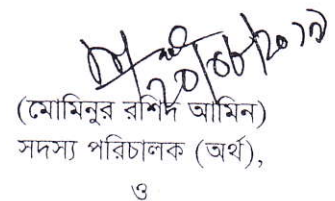 ২০/০৮/২০১৭
(মোমিনুর রশিদ আমিন)
সদস্য পরিচালক (অর্থ),
ও